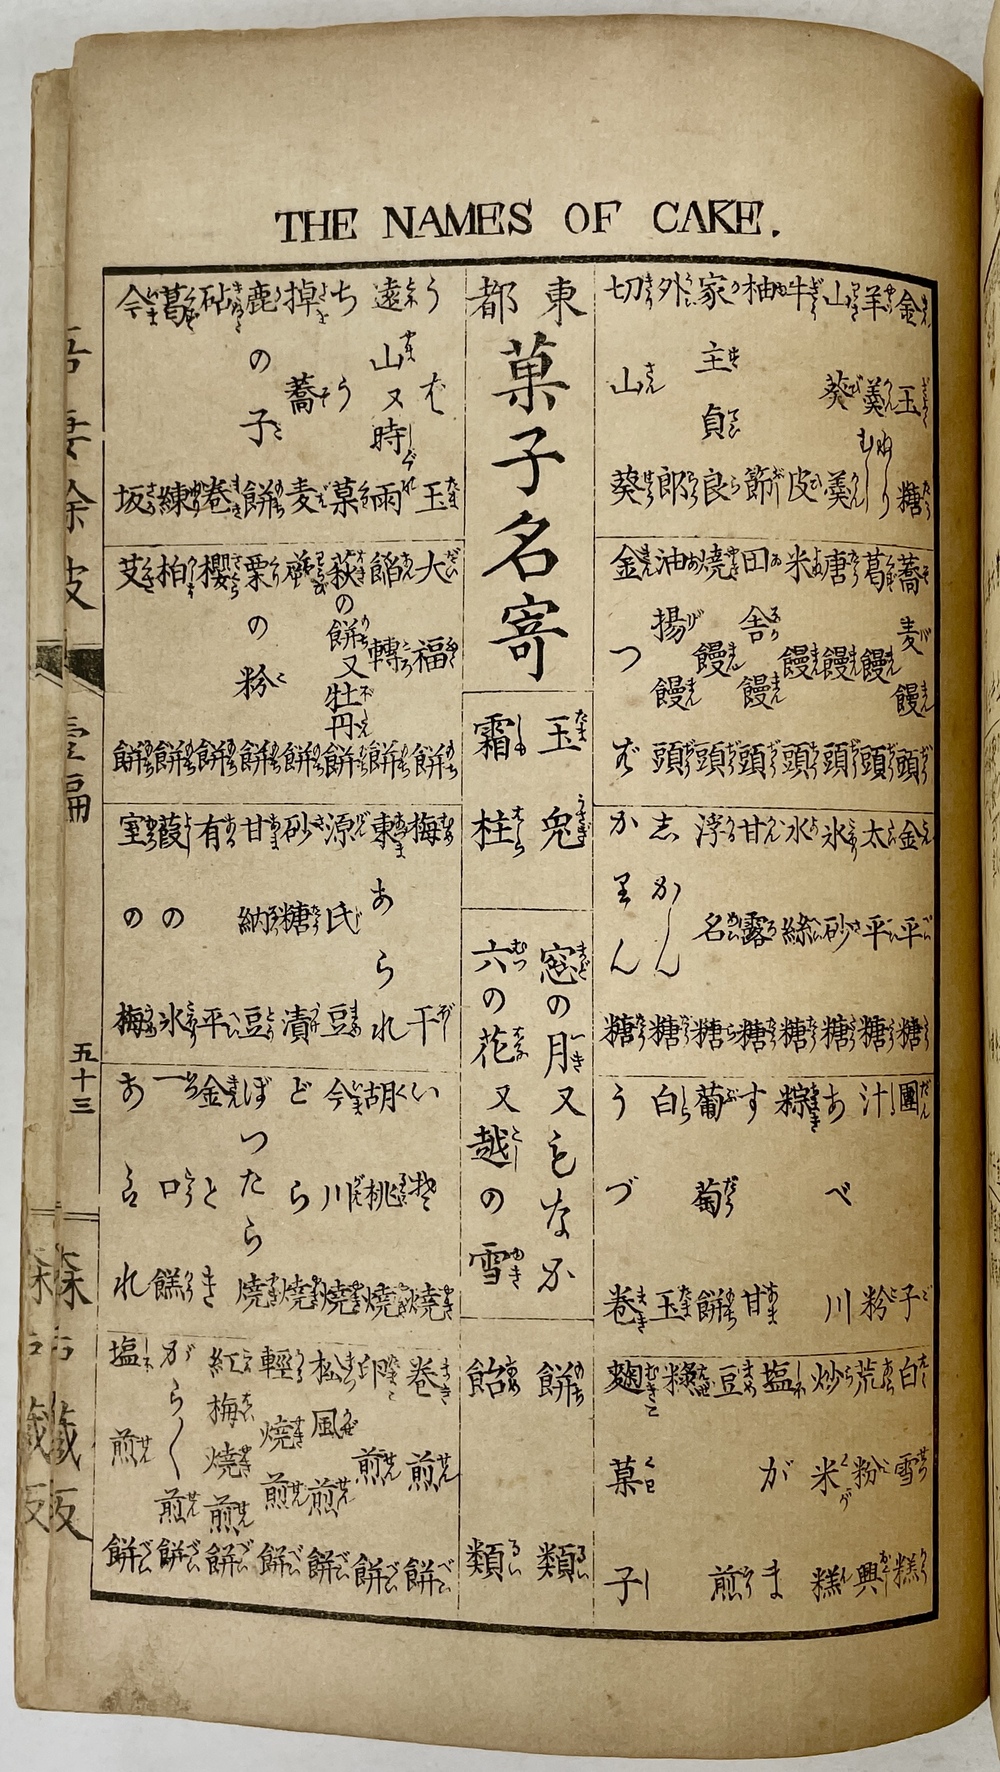 THE NAMES OF CAKE.
金玉糖
羊羹
山葵羹
牛皮
柚節
家主貞良
外郎
切山葵
蕎麦饅頭
葛饅頭
唐饅頭
米饅頭
田舎饅頭
焼饅頭
油揚饅頭
金つば
金平糖
太平糖
氷砂糖
氷絲糖
甘露糖
浮名糖
志がらん糖
かりん糖
團子
汁粉
あべ川
粽
す甘
葡萄餅
白玉
うづ巻
白雪糕
荒粉興
炒米糕
塩がま
豆煎
麹菓子
東都
菓子名寄
玉兎
霜柱
窓の月又もなか
六の花又越の雪
餅類
飴類
うば玉
遠山又時雨
ちぢう菓
掉蕎麦
鹿の子餅
砧巻
葛練
今坂
大福餅
餡轉餅
萩の餅又牡丹餅
粟の粉餅
櫻餅
柏餅
艾餅
梅干
東あられ
源氏豆
砂糖漬
甘納豆
有平
葭の氷
室の梅
胡桃焼
今川焼
どら焼
ぼつたら焼
金とき
一口餻
あられ
巻煎餅
印煎餅
松風煎餅
輕焼煎餅
紅梅焼煎餅
がら〱煎餅
塩煎餅
吾妻余波
壱編
五十三